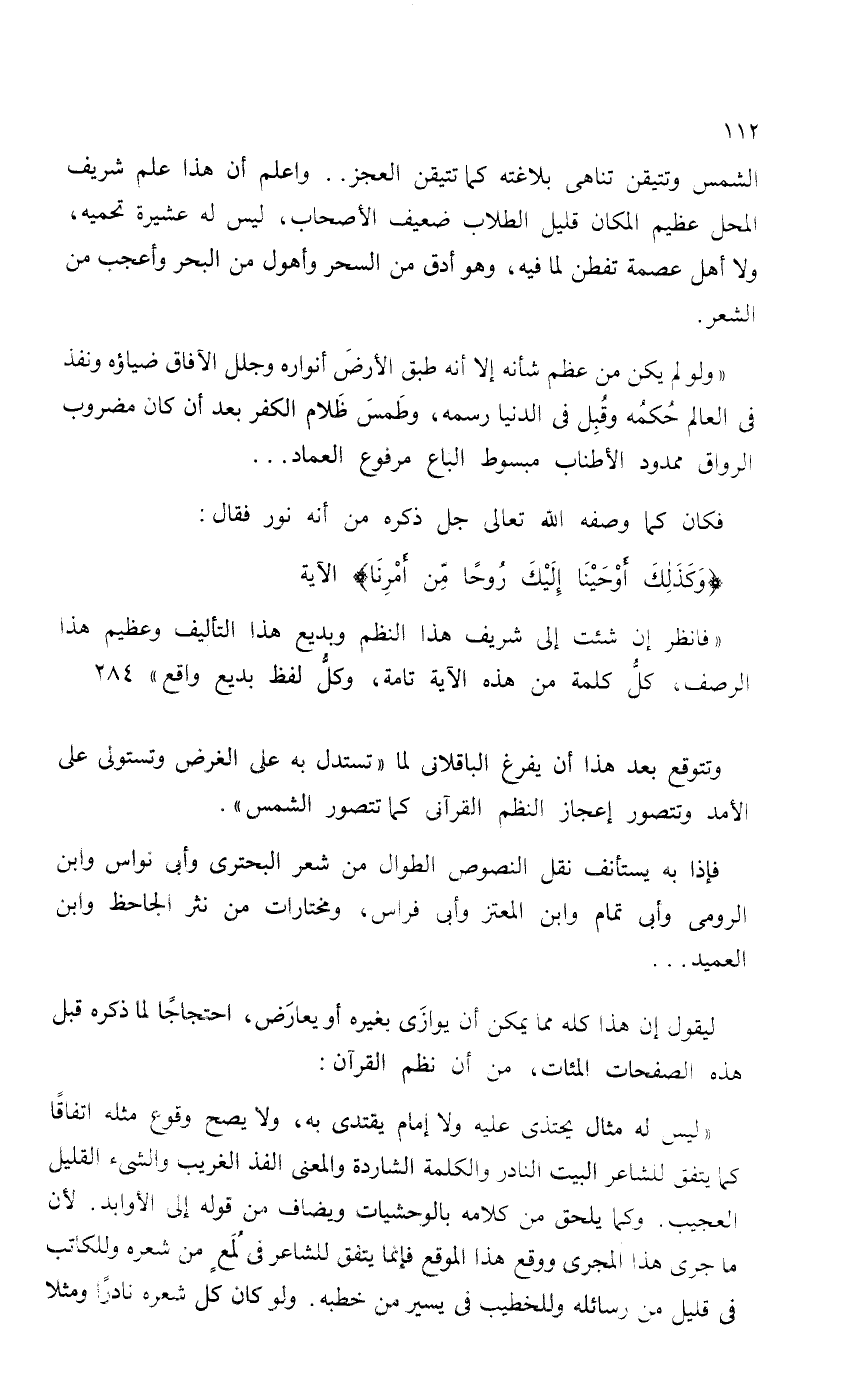 ١١٢
الشمس وتتيقن تناهى بلاغته كما تتيقن العجز.. واعلم أن هذا علم شريف
المحل عظيم المكان قليل الطلاب ضعيف الأصحاب، ليس له عشيرة تحميه،
ولا أهل عصمة تفطن لما فيه، وهو أدق من السحر وأهول من البحر وأعجب من
الشعر.
«ولو لم يكن من عظم شأنه إلا أنه طبق الأرضَ أنواره وجلل الآفاق ضياؤه ونفذ
فى العالم حُكمُه وقُبِل فى الدنيا رسمه، وطَمسَ ظَلام الكفر بعد أن كان مضروب
الرواق ممدود الأطناب مبسوط الباع مرفوع العماد...
فكان كما وصفه الله تعالى جل ذكره من أنه نور فقال:
﴿وَكَذَلِكَ أَوْحَيْنَا إِلَيْكَ رُوحًا مِّن أَمْرِنَا﴾ الآية
«فانظر إن شئت إلى شريف هذا النظم وبديع هذا التأليف وعظيم هذا
الرصف، كلُّ كلمة من هذه الآية تامة، وكلُّ لفظ بديع واقع» ٢٨٤
وتتوقع بعد هذا أن يفرغ الباقلانى لما «تستدل به على الغرض وتستولى على
الأمد وتتصور إعجاز النظم القرآنى كما تتصور الشمس».
فإذا به يستأنف نقل النصوص الطوال من شعر البحترى وأبى نواس وابن
الرومى وأبى تمام وابن المعتز وأبى فراس، ومختارات من نثر الجاحظ وابن
العميد...
ليقول إن هذا كله مما يمكن أن يوازَى بغيره أو يعارَض، احتجاجًا لما ذكره قبل
هذه الصفحات المئات، من أن نظم القرآن:
«ليس له مثال يحتذى عليه ولا إمام يقتدى به، ولا يصح وقوع مثله اتفاقًا
كما يتفق للشاعر البيت النادر والكلمة الشاردة والمعنى الفذ الغريب والشىء القليل
العجيب. وكما يلحق من كلامه بالوحشيات ويضاف من قوله إلى الأوابد. لأن
ما جرى هذا المجرى ووقع هذا الموقع فإنما يتفق للشاعر فى لُمَعٍ من شعره وللكاتب
فى قليل من رسائله وللخطيب فى يسير من خطبه. ولو كان كل شعره نادرًا ومثلا